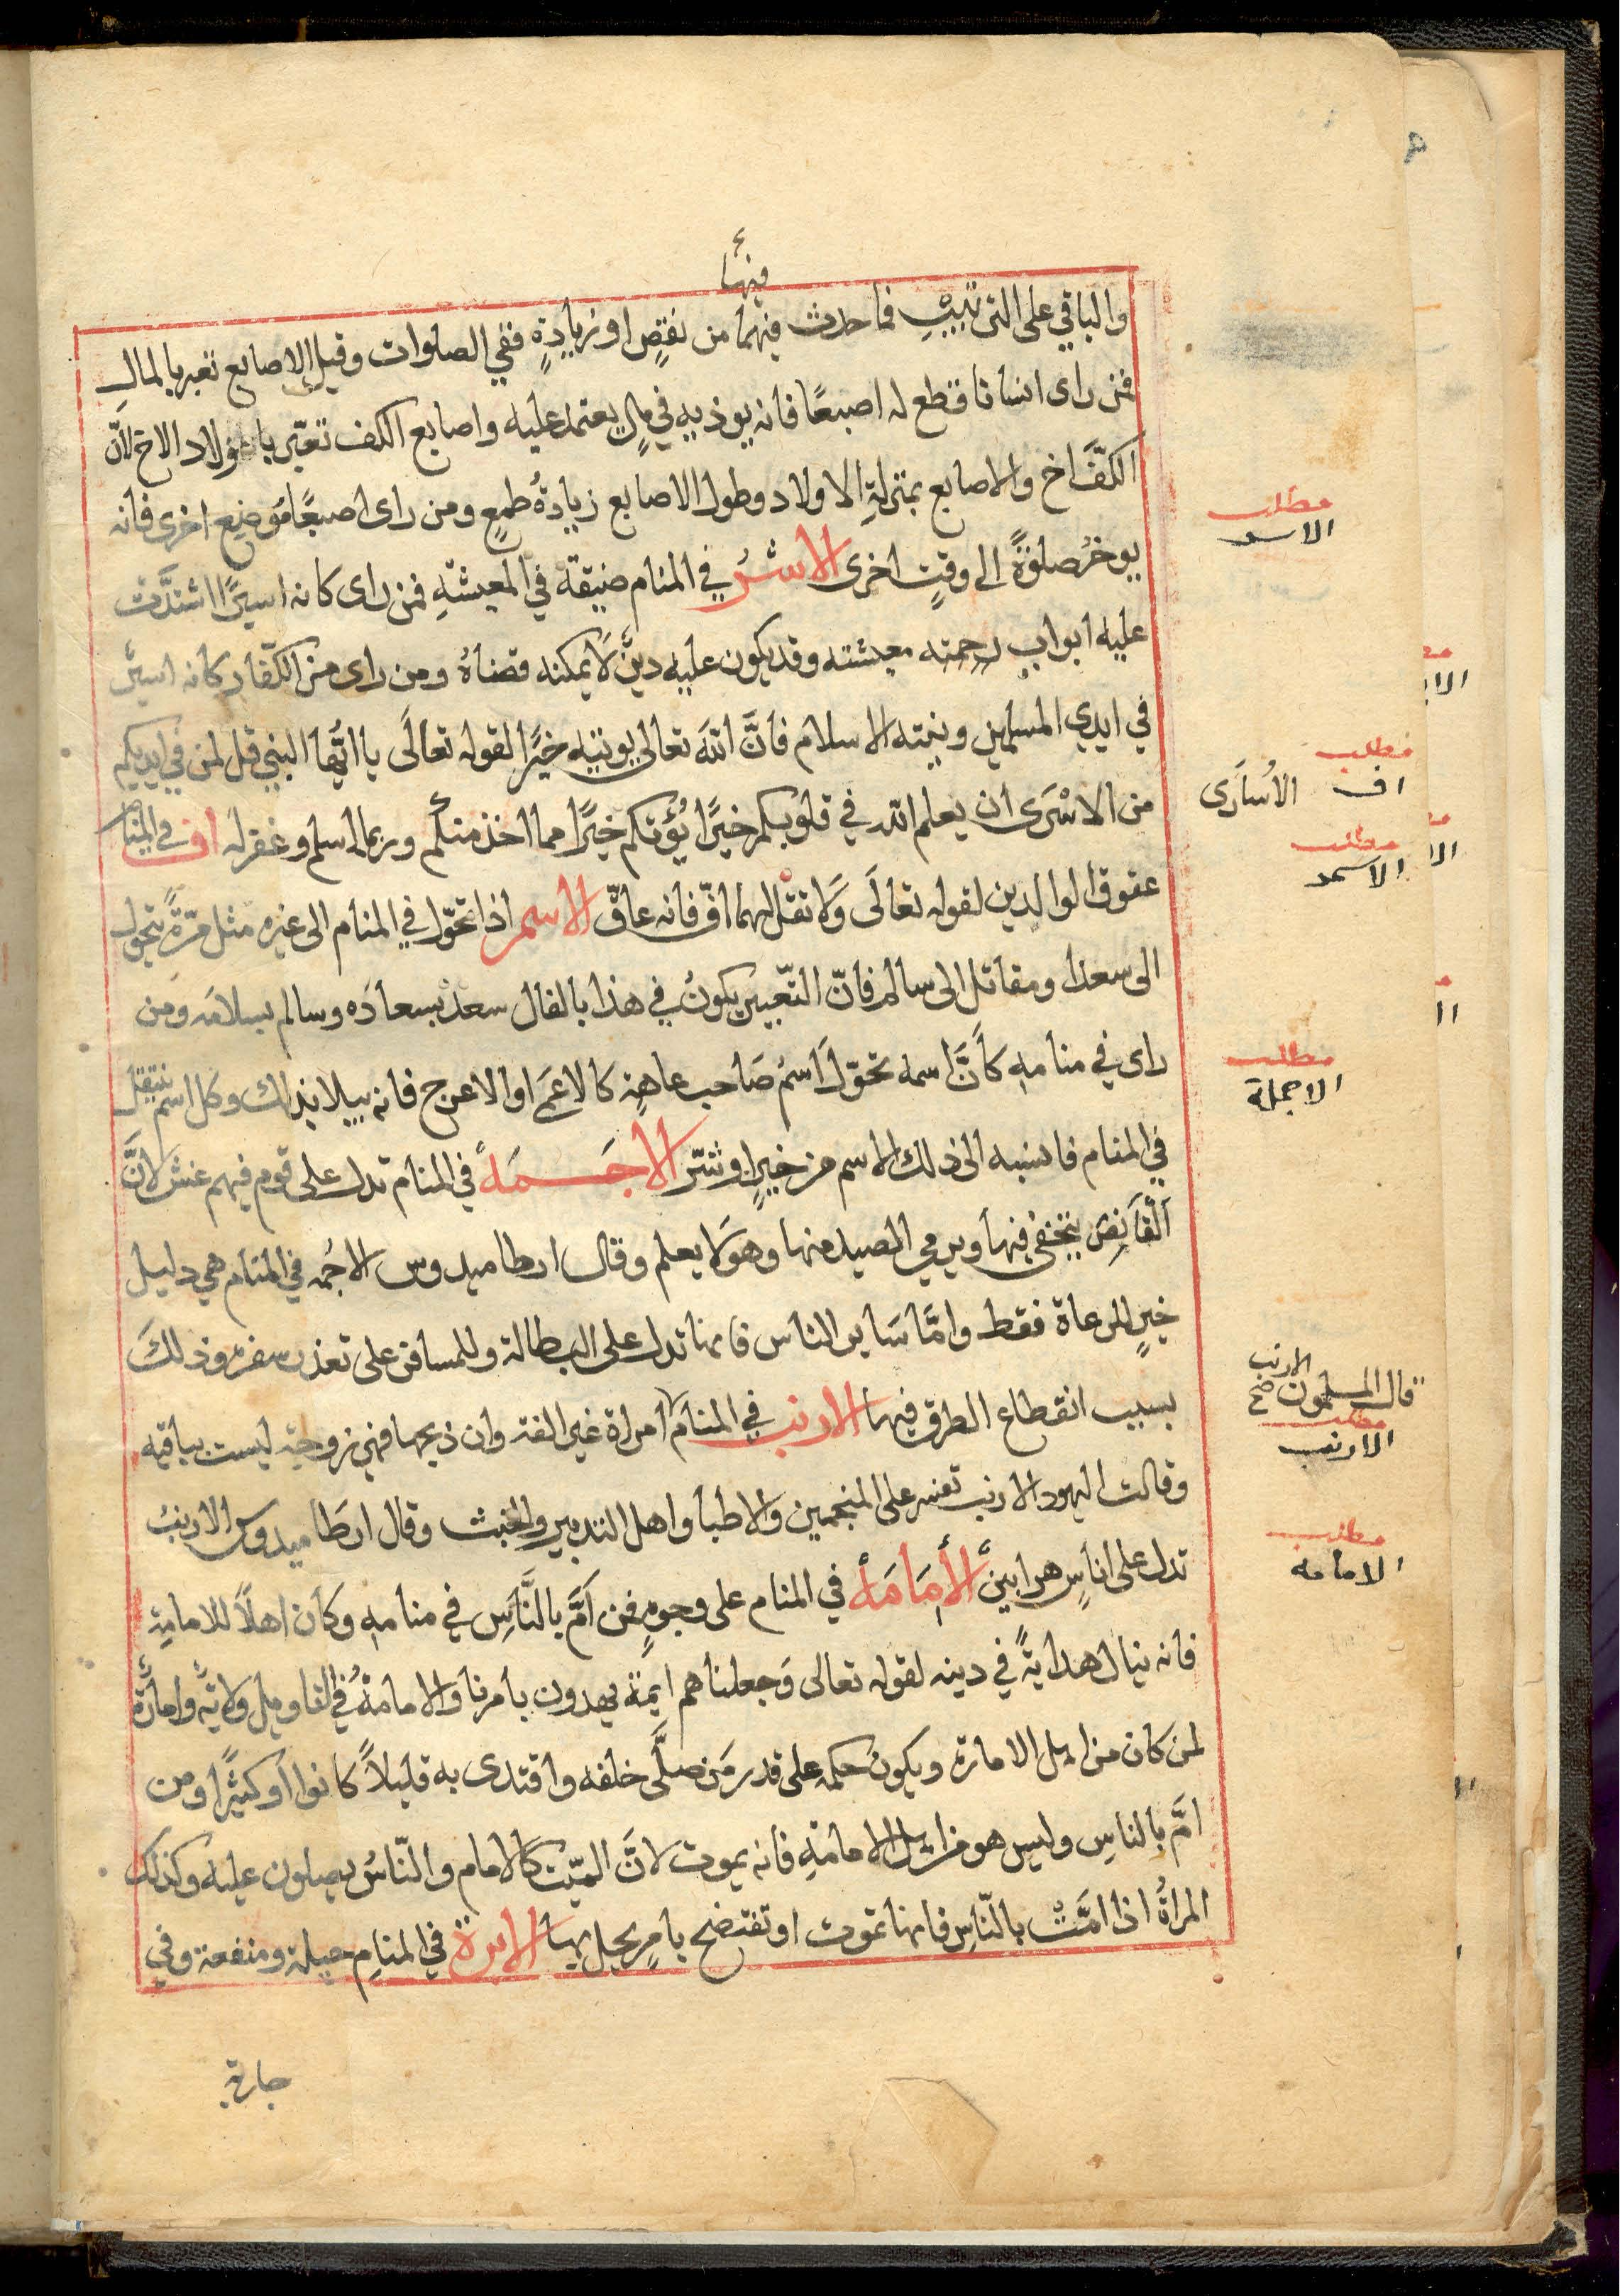 فيها
والباقي على الترتيبِ فما حدث فيهما من نقصٍ او زيادةٍ ففي الصلوات وقيل الاصابع تعبر بالمالِ
فمن راى انسانا قطع له اصبعًا فانه يوذيه في مالٍ يعتمد عليه واصابع الكف تعبّر باولاد الاخ لانّ
الكفَّ اخ والاصابع بمنزلةِ الاولاد وطول الاصابع زيادةُ طمعٍ ومن راى اصبعًا مَوضِع اخرى فانه
يوخرُ صلوةً الى وقتٍ اخرى الاسْرُ في المنام ضيقة في المعيشةِ فمن راى كانه اسيرًا اشتدَّت
عليه ابواب رحمته معيشته وقد يكون عليه دينٌ لَا يمكنه قضاهُ ومن راى من الكفّار كانه اسيرٌ
في ايدي المسلمين ونيته الاسلام فانَّ اللهَ تعالى يوتيه خيرًا لقوله تعالَى يا ايُّها النبي قل لمن في ايديكم
من الاسْرَى ان يعلم الله في قلوبكم خيرًا يُؤتكم خيرًا مما اخذ منكُم وربما اسلم وغفر له اف في المنام
عقوق الوالدين لقوله تعالَى وَلا تقل لهما افّ فانه عاقّ الاسم اذا تحوّل في المنام الى غيره مثل مُرّةً يتحول
الى سعد او مقاتل الى سالم فانّ التعّبير يكونُ في هذا بالفال سعدْ بسعادَه وسالم بسلامَه ومن
راى في منامهِ كأنَّ اسمه تحوّلَ اسمُ صَاحب عاهةٍ كالاعمَى او الاعرج فانه يبلا بذلك وكل اسم ينتقل
في المنام فانسبه الى ذلك الاسم من خيرٍ او شرّ الاجَمَةُ في المنام تدل على قوم فيهم غش لانَّ
القَانِص يتخفى فيها ويرمي الصيد منها وهوَ لا يعلم وقال ارطاميدوس الاجُمه في المنام هي دليل
خيرٍ للرعاة فقط وامَّا سَاير الناس فانها تدل على البطالة وللمسافر على تعذر سفره وذلكَ
بسبب انقطاع الطرق فيها الارنب في المنام امراة غير الفة وان ذبحها فهي زوجة ليست بباقيه
وقالت اليهود الارنب تعبر على المنجمين والاطبا واهل التدبير والخبث وقال ارطَاميدوس الارنبُ
تدل على اناسٍ هرابينَ الأِمَامَةُ في المنام على وجوهٍ فمن اَمَّ بالنَّاسِ في منامهِ وكَان اهلاً للامامةِ
فانه ينال هدايةً في دينه لقوله تعالى وَجعلناهم ايمة يهدون بامرنا والامامةُ في التاويل ولايَةٌ وامارةٌ
لمن كان من اهل الامارة ويكون حكمه على قدر مَن صلَّى خلفه واقتدى به قليلاً كانوا او كثيرًا ومن
امَّ بالناسِ وليس هو من اهل الامامةِ فانه يموت لانَّ الميّت كالامام والنّاسُ يصلون عليه وكذلك
المراةُ اذا امَّتْ بالنّاسِ فانها تموت او تفتضح بامرٍ يحل بها الابرة في المنامِ حيلة ومنفعة وفي
جارية
مطلب
الاسر
مطلب
اف الأسارَى
مطلب
الاسم
مطلب
الاجمة
قال المسلمون الارنب صح
مطلب
الارنب
مطلب
الامامه